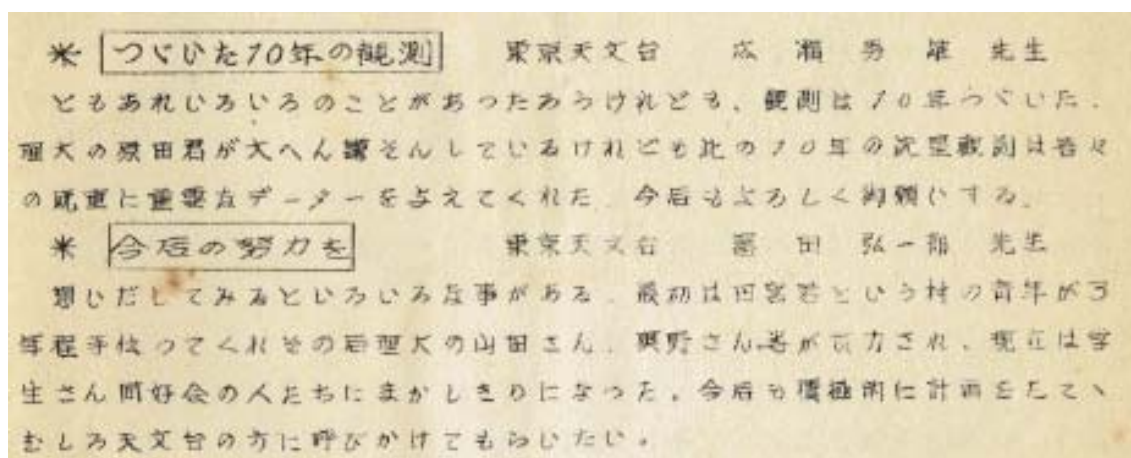 米 つゞいた10年の観測 東京天文台 広瀬秀雄 先生
ともあれいろいろのことがあったろうけれども、観測は10年つゞいた.
理大の原田君が大へん謙そんしているけれども此の10年の流星観測は吾々
の に重要なデーターを与えてくれた 今后もよろしく御願いする。
米 今后の努力を 東京天文台 冨田弘一郎 先生
想いだしてみるといろいろな事がある。最初は田宮君という村の青年が3
年程手伝ってくれその后理大の山田さん、奥野さん等が され、現在は学
生さん同好会の人たちにまかしきりになった。今后も積極的に計画をたてヽ
むしろ天文台の方に呼びかけてもらいたい。